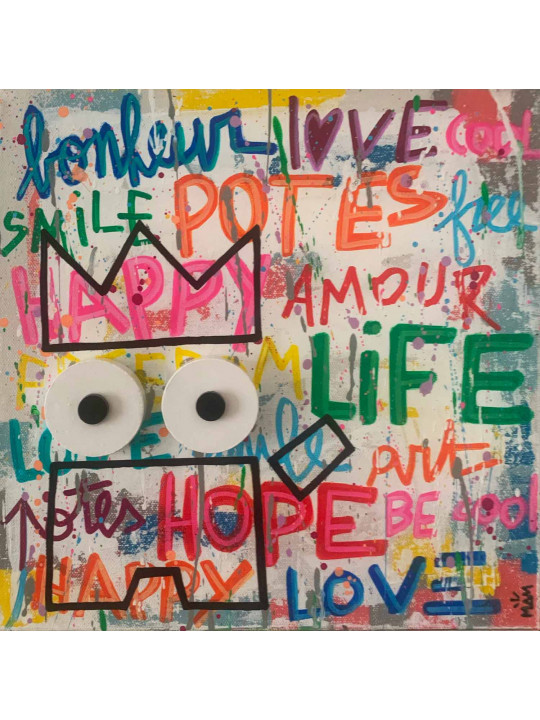 bonheur LOVE COOL
SMILE POTES free
HAPPY AMOUR
FREEDOM LiFE
LOVE smile art
potes HOPE BE cool
HAPPY LOVE
MAM